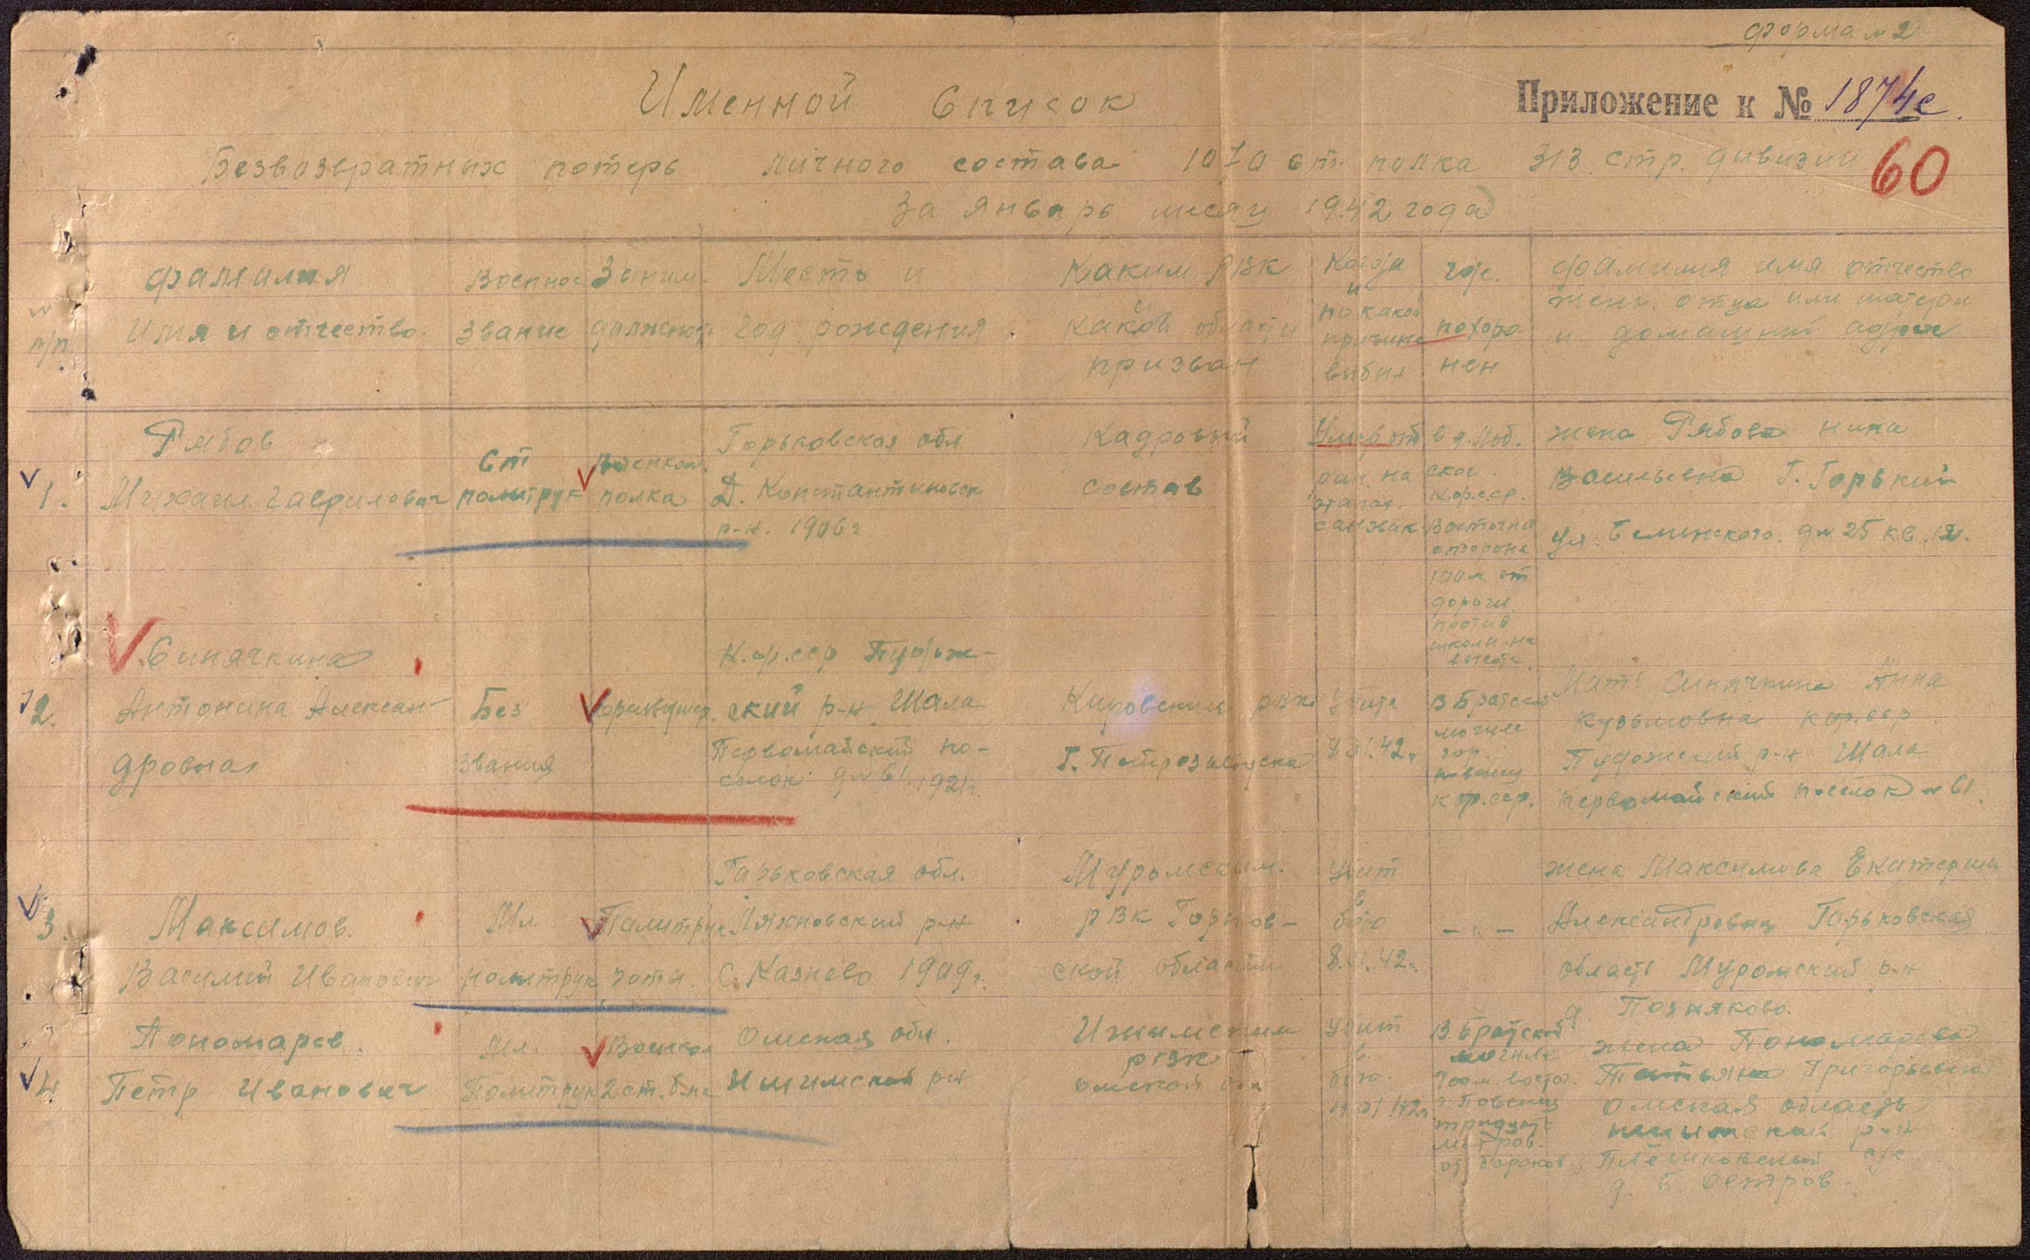 форма № 2
Именной список
Приложение к № 1874с
Безвозвратных потерь личного состава 1070 ст. полка 313 стр. дивизии
60
За январь месяц 1942 года
№ п/п
фамилия
Имя и отчество
Военное
звание
Заним.
должност
Место и
год рождения
Каким РВК
какой области
призван
Когда
и
по какой
причине
выбыл
где
похоро
нен
фамилия имя отчество
жены отца или матери
и домашний адрес
1.
Рябов
Михаил Гаврилович
Ст
политрук
Военком
полка
Горьковская обл
Д. Константиновск
р-н. 1906 г
Кадровый
состав
Умер от
ран на
этапах
санэвак
в д. Лоб.
ское
Кар.сср.
Восточна
сторона
100 м от
дороги
против
школы на
высоте
жена Рябова Нина
Васильевна г. Горький
ул. Белинского. д № 25 кв. 12.
2.
Синячкина
Антонина Алексан-
дровна
Без
звания
К.ф.сср Пудож-
ский р-н Шала
Первомайский по-
селок д № 61. 1921 г.
Кировским РВК
г. Петрозаводска
Убита
42 г
В Братской
могиле
гор.
Повенец
к.ф.сср.
Мать Синячкина Анна
Кузьмовна к.ф.сср
Пудожский р-н Шала
первомайский поселок № 61.
3.
Максимов.
Василий Иванович
Мл
политрук
Политрук
роты.
Горьковская обл.
Ляховский р-н
С. Казнево 1909 г.
Муромским.
РВК Горьков-
ской области
Убит
в
бою
8.01.42 г.
- " -
жена Максимова Екатерина
Александровна Горьковская
область Муромский р-н
д. Позняково.
4
Пономарев.
Петр Иванович
Мл.
Политрук
Военком
2 ст. б-на
Омская обл.
Ишимский р-н
Ишимским
РВК
омской обл
Убит
в.
бою.
В Братской
могиле
700 м. восто.
г. Повенец
тридцат
метров.
от бараков
жена Пономарева
Татьяна Григорьевна
Омская область
Ишимский р-н
Плешковский с/с
д. Б Остров.